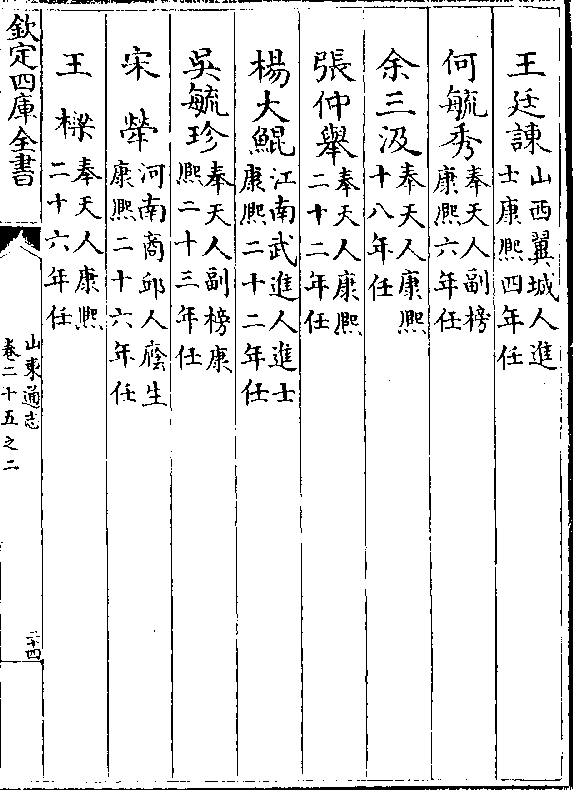 王廷諫山西翼城人進士康熙四年任
何毓秀奉天人副榜康熙六年任
余三汲奉天人康熙十八年任
張仲舉奉天人康熙二十二年任
楊大鯤江南武進人進士康熙二十二年任
吳毓珍奉天人副榜康熙二十三年任
宋犖河南商邱人廕生康熙二十六年任
王樑奉天人康熙二十六年任
欽定四庫全書
山東通志
卷二十五之二
二十四